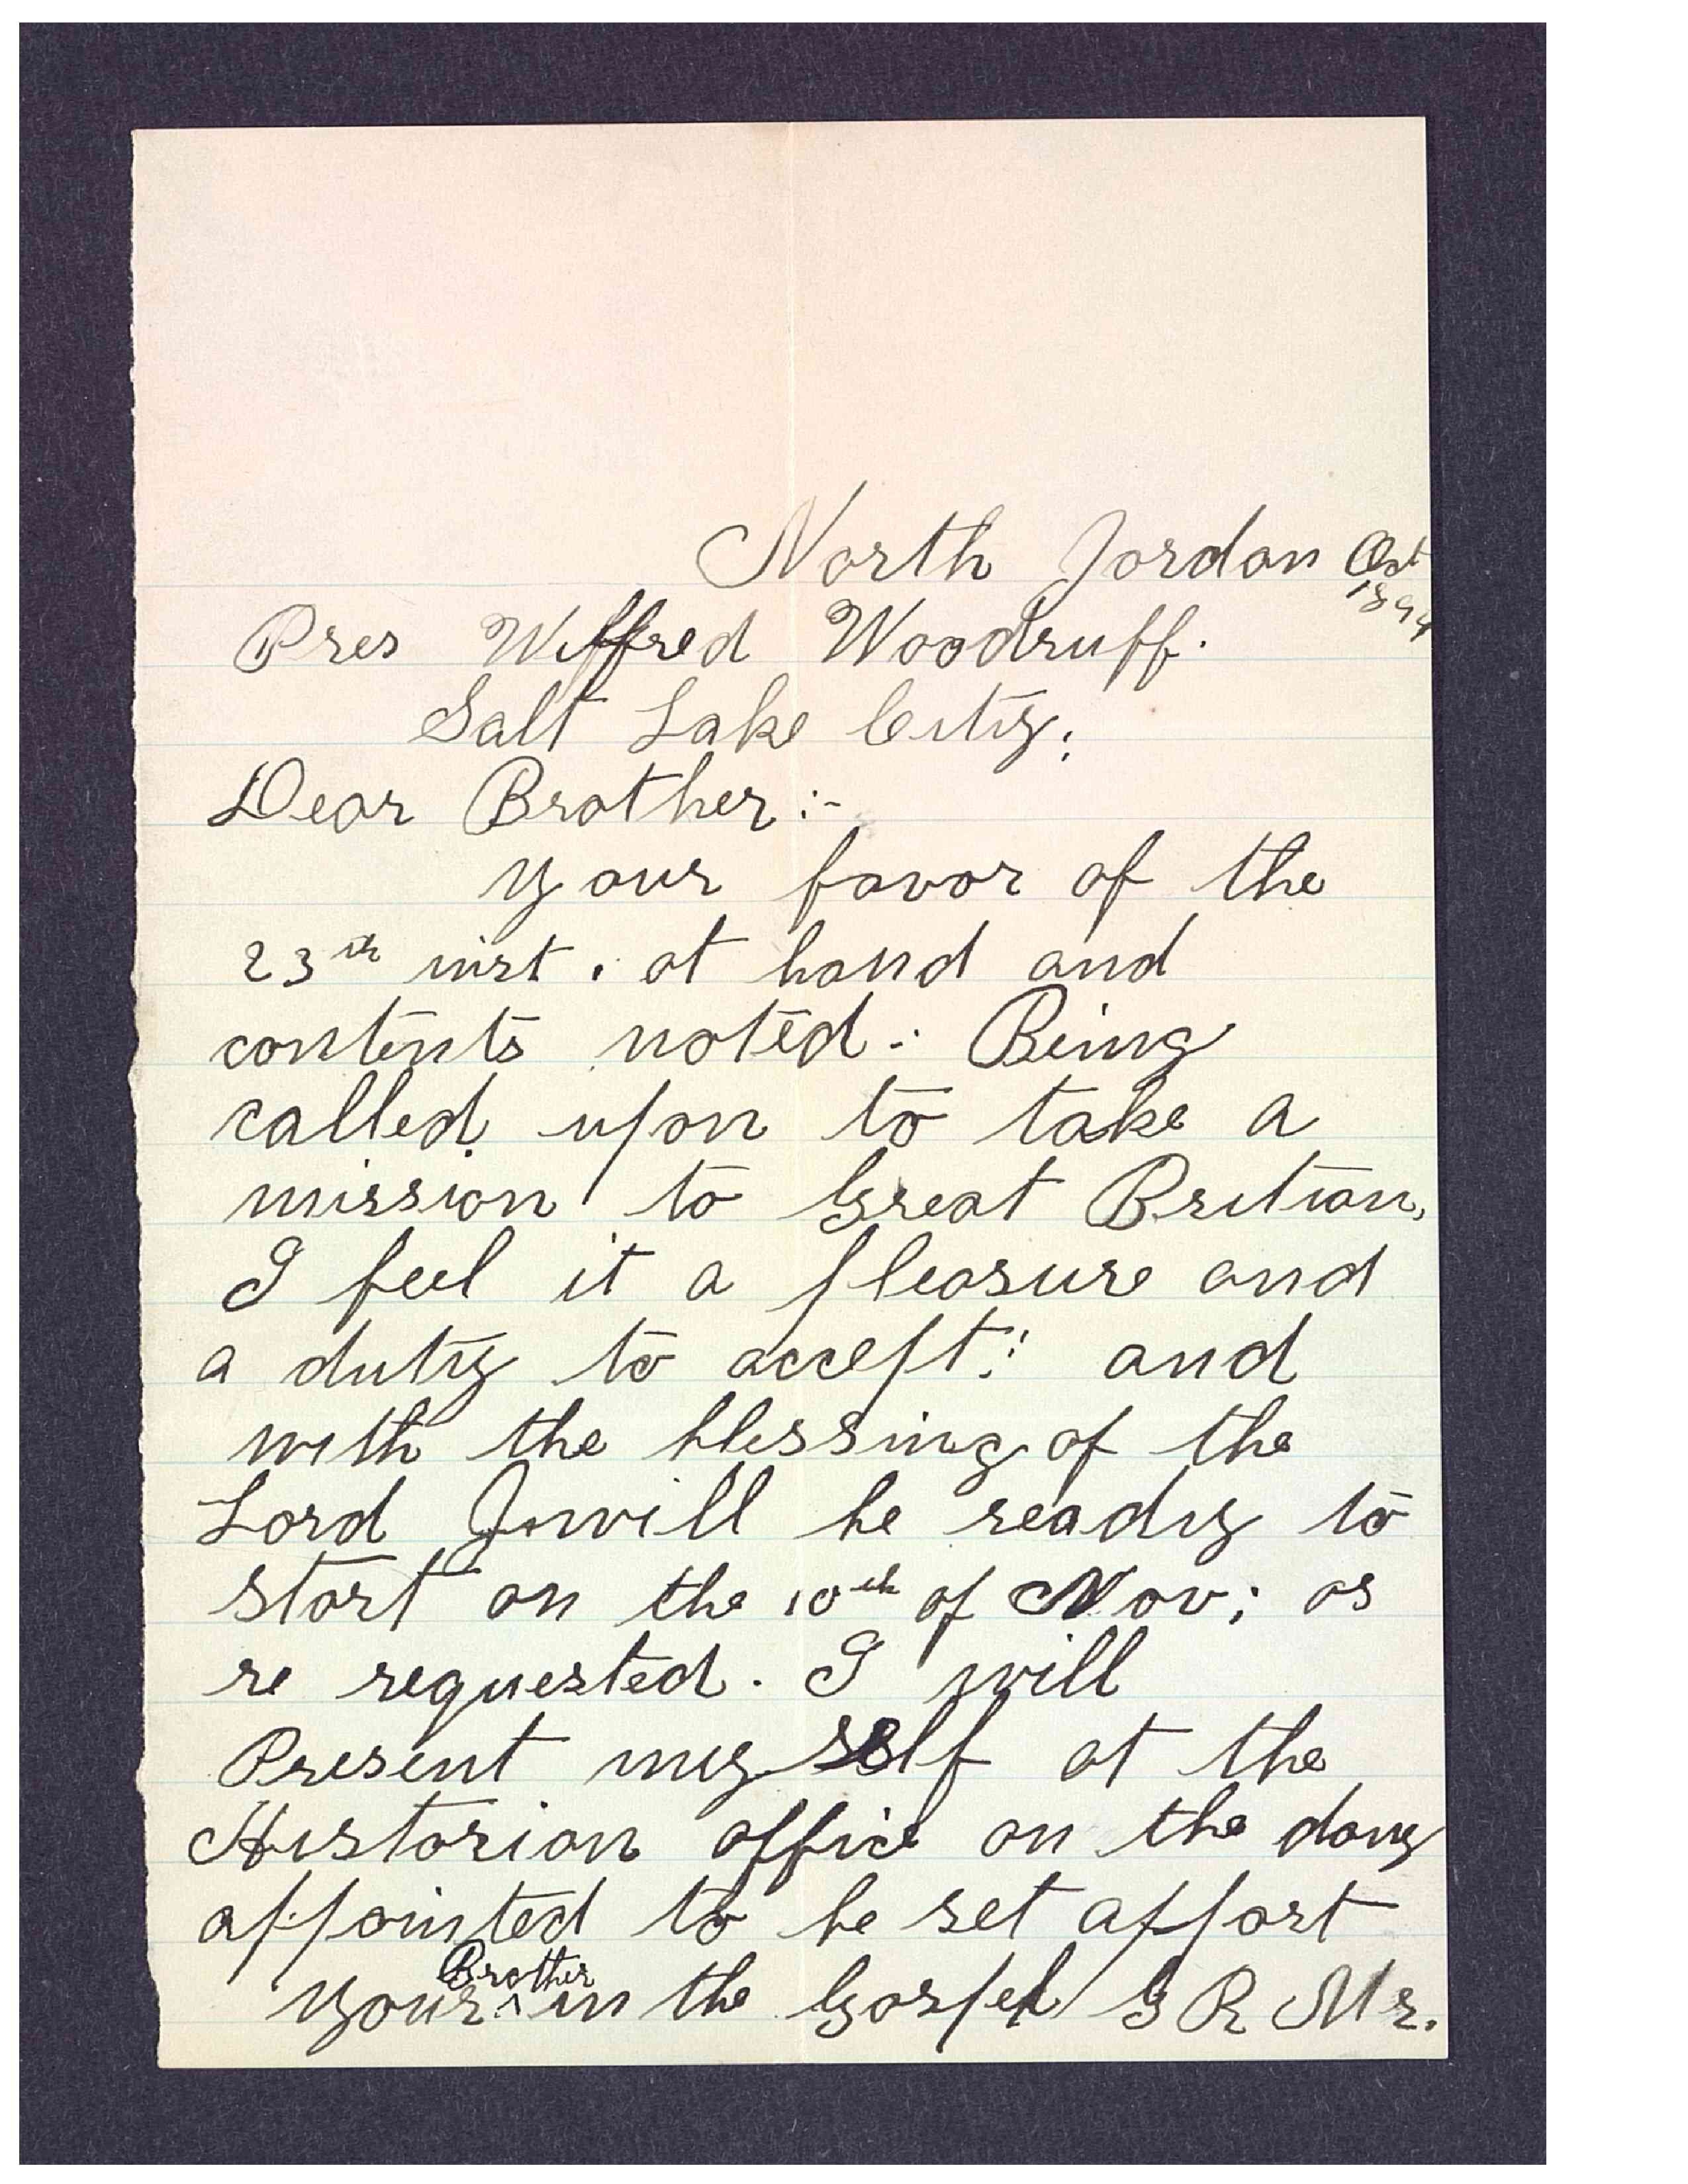 North Jordan Oct
1894
Pres Wilfred Woodruff.
Salt Lake City;
Dear Brother:-
Your favor of the
23th inst. at hand and
contents noted: Being
called upon to take a
mission to Great Britian,
I feel it a pleasure and
a duty to accept: and
with the blessing of the
Lord I will be ready to
start on the 10th of Nov; as
re requested. I will
Present my self at the
Historian office on the day
appointed to be set appart
Brother
Your ^ in the Gospel G R